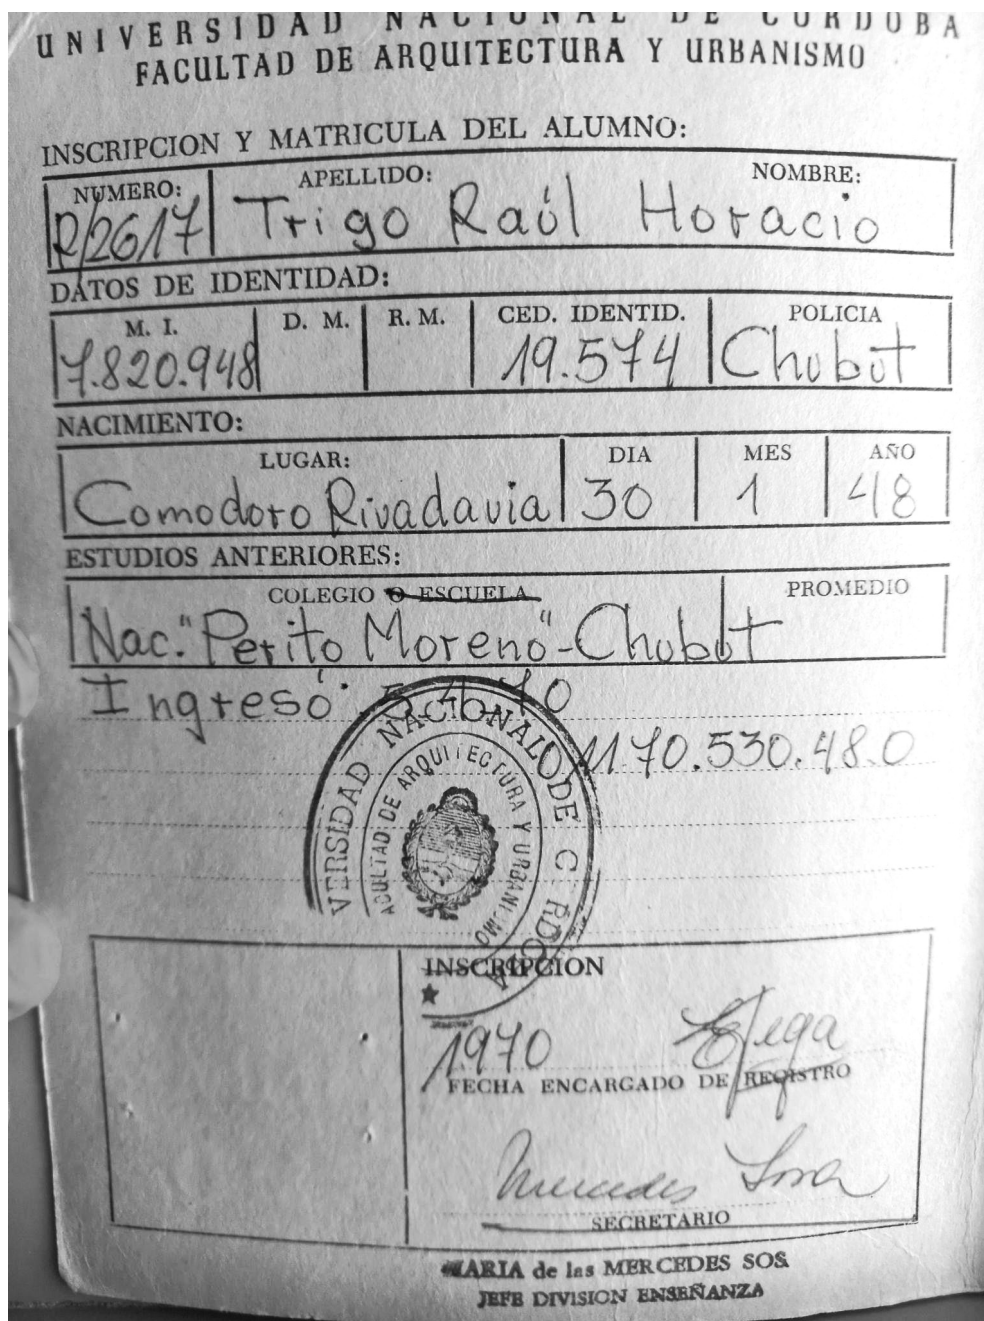 UNIVERSIDAD NACIONAL DE CORDOBA
FACULTAD DE ARQUITECTURA Y URBANISMO
INSCRIPCION Y MATRICULA DEL ALUMNO:
NUMERO: APELLIDO: NOMBRE:
R/2617 Trigo Raúl Horacio
DATOS DE IDENTIDAD:
M. I. D. M. R. M. CED. IDENTID. POLICIA
7.820.948 19.574 Chubut
NACIMIENTO:
LUGAR: DIA MES AÑO
Comodoro Rivadavia 30 1 48
ESTUDIOS ANTERIORES:
COLEGIO O ESCUELA PROMEDIO
Nac. "Perito Moreno" - Chubut
Ingresó: 5.4.70
1170.530.48.0
VERSIDAD NACIONAL DE C RDOBA
ACULTAD DE ARQUITECTURA Y URBANISMO
INSCRIPCION
1970
FECHA ENCARGADO DE REGISTRO
Mercedes Sosa
SECRETARIO
MARIA de las MERCEDES SOS
JEFE DIVISION ENSEÑANZA